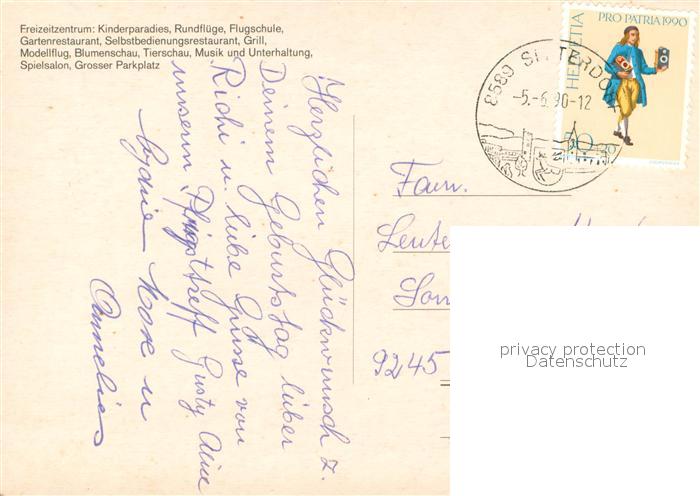 Freizeitzentrum: Kinderparadies, Rundflüge, Flugschule,
Gartenrestaurant, Selbstbedienungsrestaurant, Grill,
Modellflug, Blumenschau, Tierschau, Musik und Unterhaltung,
Spielsalon, Grosser Parkplatz
Herzlichen Glückwunsch z.
Deinem Geburtstag lieber
Richi u. liebe Grüsse von
unserm Pfingsttreff Gusty Aline
Rose u
Annelies
HELVETIA
PRO PATRIA 1990
50+20
8589 SITTERDORF
-5.-6.90-12
Fam.
9245
privacy protection
Datenschutz